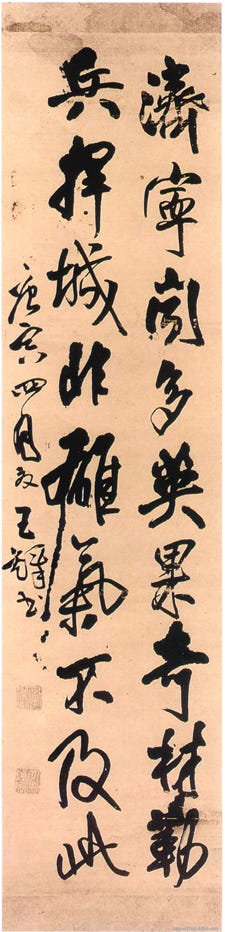 濟寧固多英果奇材勤
兵捍城非雄氣不及此
庚寅四月夜王鐸書